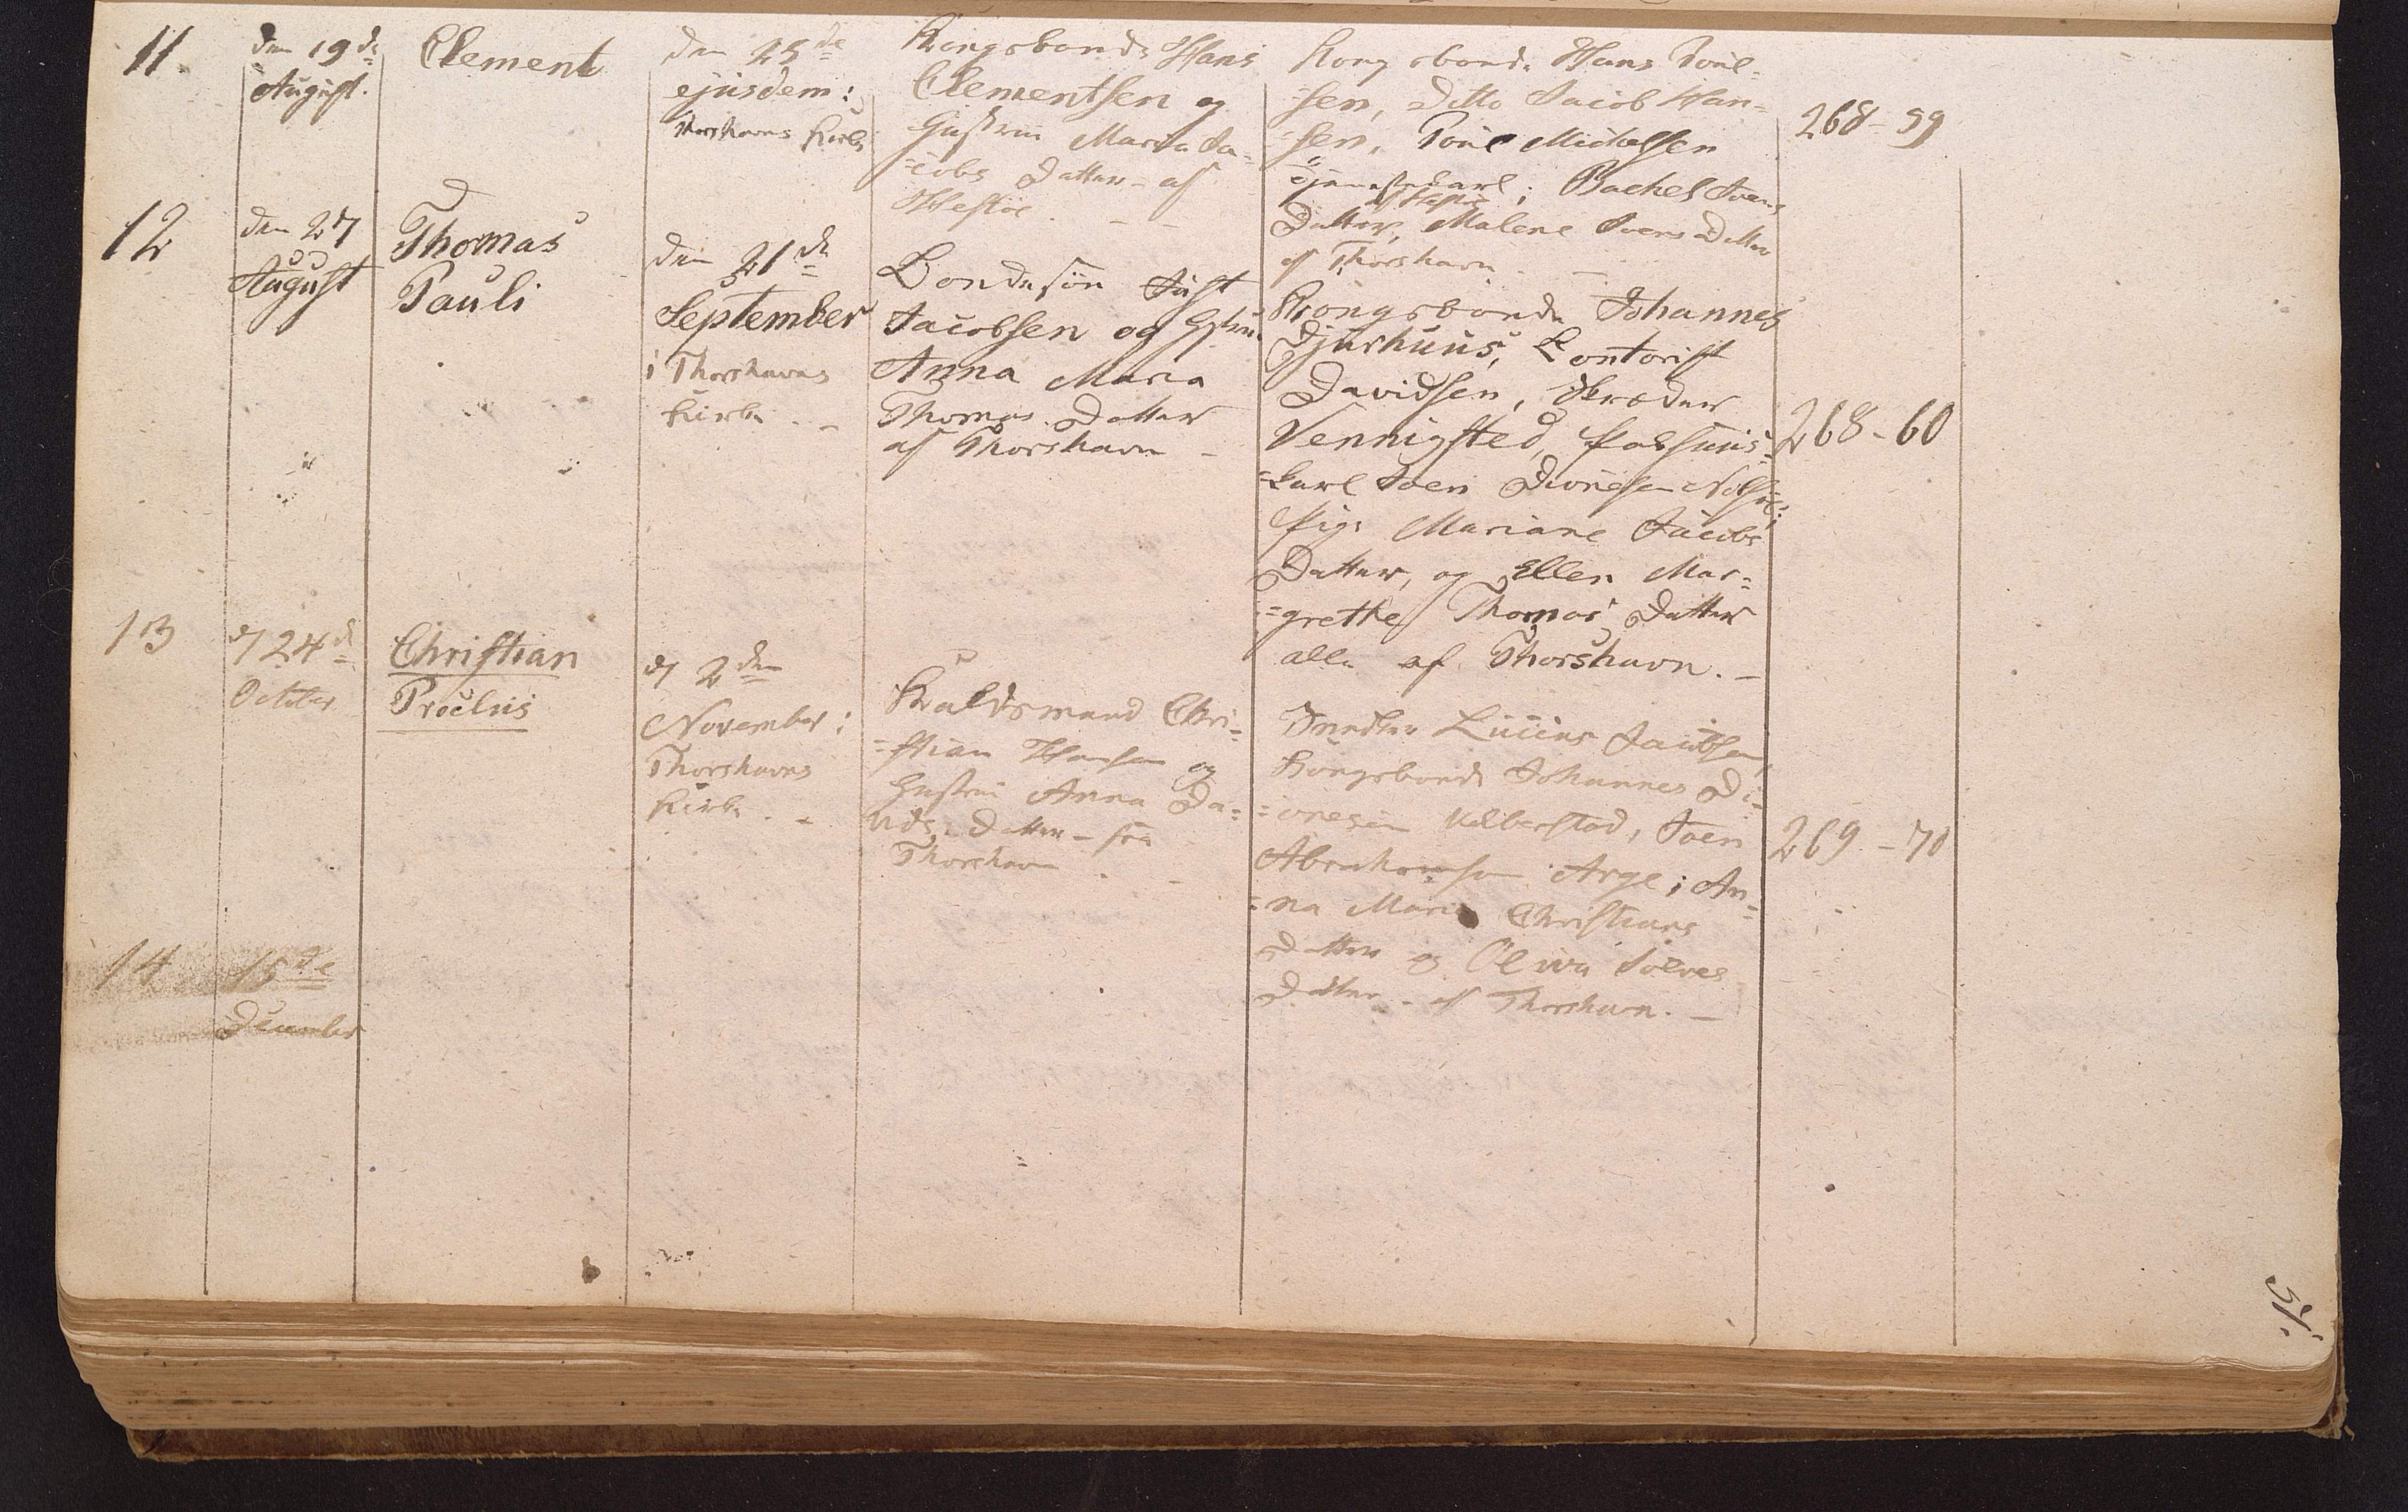 11.
den 19de
August.
Clement
den 25de
ejusdem i
Thorshavns Kirke
Kongsbonde Hans
Clementsen og
Hustrue Maria Ja=
=cobs Datter - af
Hestøe. -
Kongsbonde Hans Poul=
=sen, Ditto Jacob Han=
=sen, Poul Michelsen
Tjenestekarl; Rachel Joens
af Hestøe
Datter, Malene Joens Datter
af Thorshavn. -
268-59
12
den 27
August
Thomas
Pauli
den 21de
September
i Thorshavns
Kirke. -
Bondesøn Just
Jacobsen og Hstru.
Anna Maria
Thomas Datter
af Thorshavn -
Kongsbonde Johannes
Djurhuus, Contorist
Davidsen, Skræder
Vennigsted,
=karl Joen Nolsøe;
Pige Mariane Jacobs
Datter, og Ellen Mar=
=grethe Thomas Datter
alle af Thorshavn. -
268-60
13
d 24d
October
Christian
Proelus
d 2den
November i
Thorshavns
Kirke. -
Kaldsmand Chri=
=stian Hansen og
Hustrue Anna Da=
vids Datter - fra
Thorshavn. -
Snedker Lucius Jacobsen,
Kongsbonde Johannes Di=
=onesen Velberstad, Joen
Abrahamsen Arge; An=
=na Maria Christians
Datter og Oliva
Datter - af Thorshavn. -
269-70
14
15de
December
51.